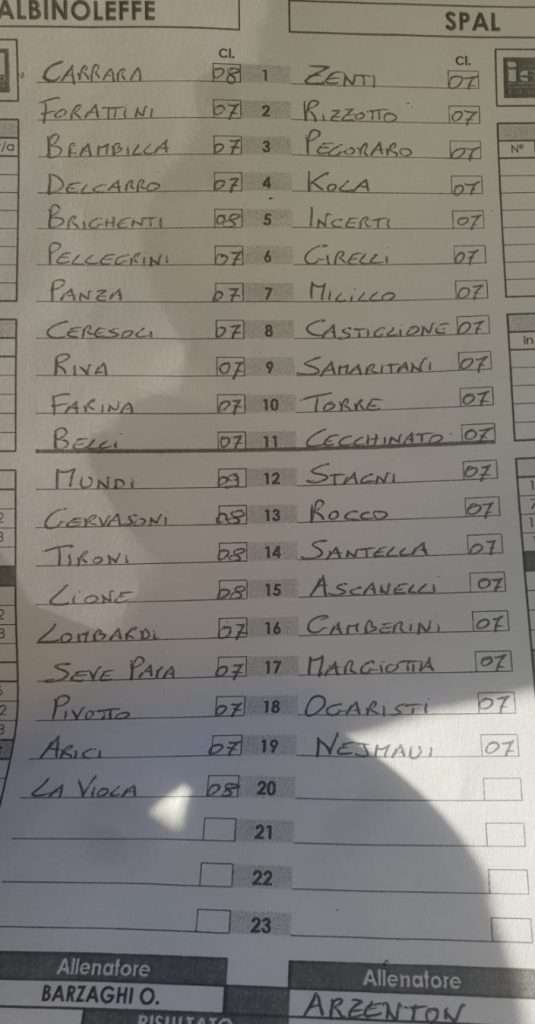 ALBINOLEFFE SPAL
Cl. Cl.
CARRARA 08 1 ZENTI 07
FORATTINI 07 2 RIZZOTTO 07
BRAMBILLA 07 3 PEGORARO 07
DELCARRO 07 4 KOLA 07
BRIGHENTI 08 5 INCERTI 07
PELLEGRINI 07 6 GIRELLI 07
PANZA 07 7 MILILLO 07
CERESOLI 07 8 CASTIGLIONE 07
RIVA 07 9 SAMARITANI 07
FARINA 07 10 TORRE 07
BELLI 07 11 CECCHINATO 07
MUNDI 12 STAGNI 07
GERVASONI 08 13 ROCCO 07
TIRONI 08 14 SANTELLA 07
LIONE 08 15 ASCANELLI 07
LOMBARDI 07 16 GAMBERINI 07
SEVE PAPA 07 17 MARGIOTTA 07
PIVOTTO 07 18 OGARISTI 07
ARICI 07 19 NEJMAUI 07
LA VIOLA 08 20
21
22
23
Allenatore Allenatore
BARZAGHI O. ARZENTON
RISULTATO